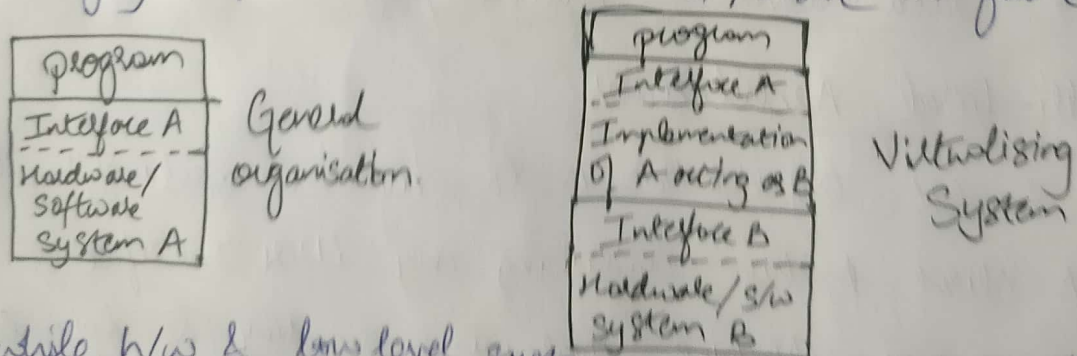 program
Interface A
Hardware/
Software
System A
General
organisation.
program
Interface A
Implementation
of A acting as B
Interface B
Hardware/s/w
System B
Virtualising
System
while h/w & low level